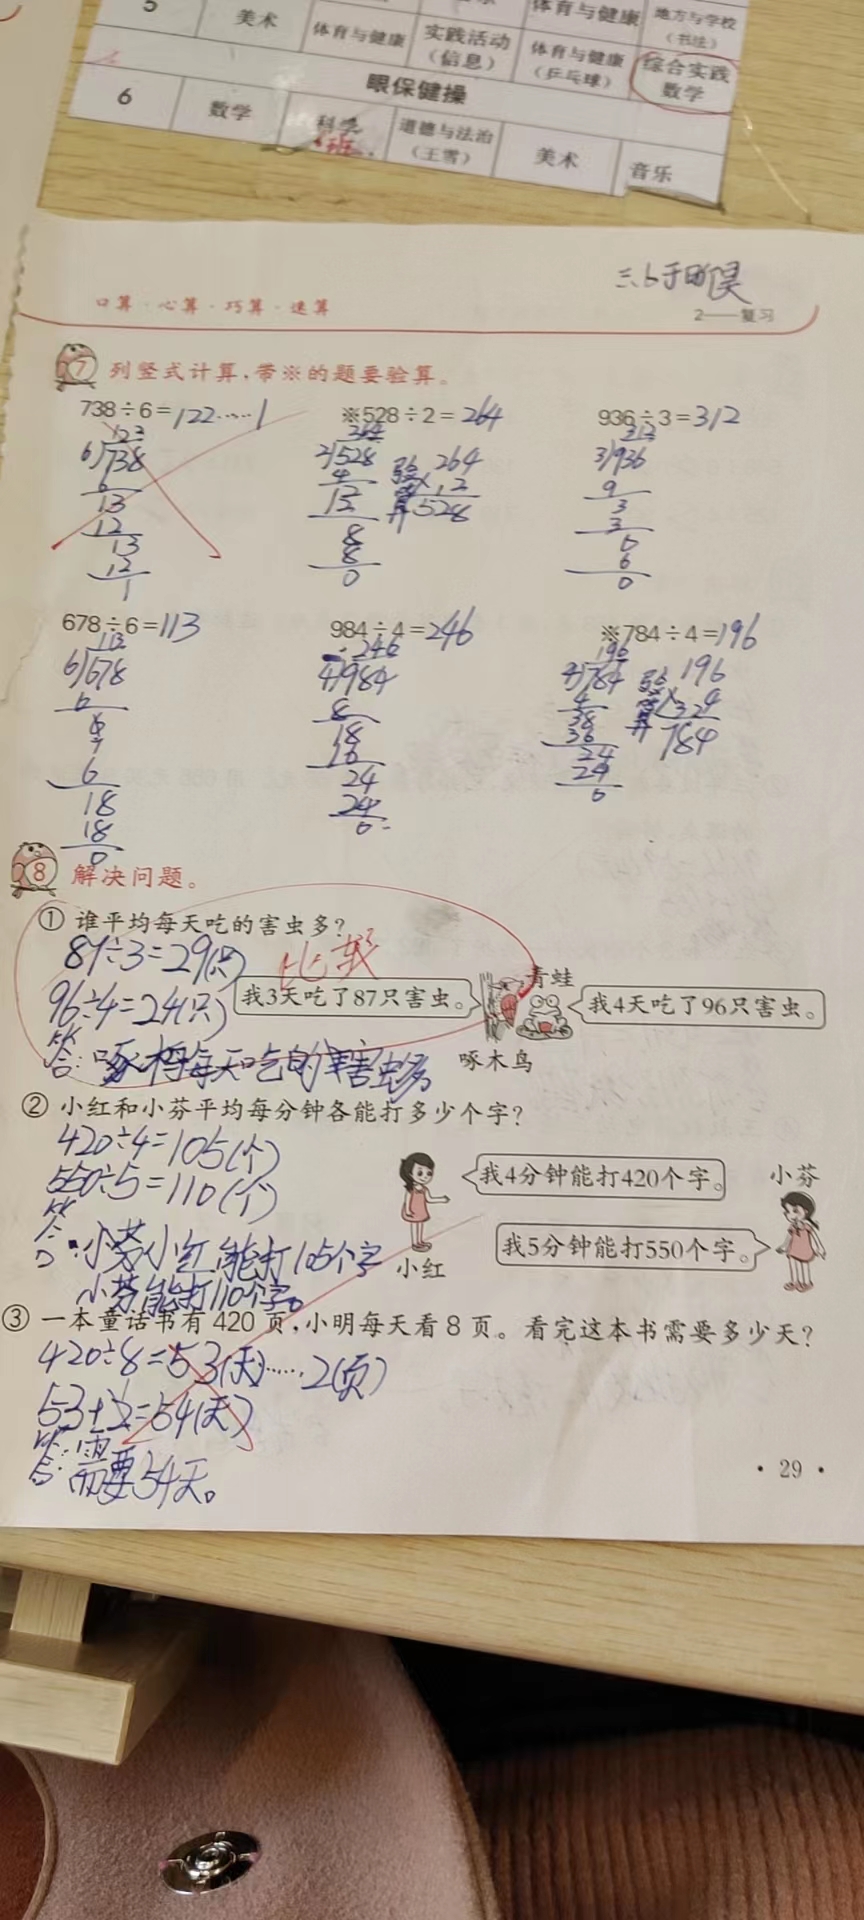 5
美术
体育与健康
实践活动
(信息)
体育与健康
体育与健康
(乒乓球)
地方与学校
(书法)
综合实践
数学
眼保健操
6
数学
科学
班
道德与法治
(王雪)
美术
音乐
口算·心算·巧算·速算
2——复习
7 列竖式计算,带※的题要验算。
738÷6=122……1
※528÷2=264
936÷3=312
122
6)738
6
13
12
13
12
1
264
2)528
4
12
8
8
0
验算
264
×2
528
312
3)936
9
3
3
6
6
0
678÷6=113
984÷4=246
※784÷4=196
113
6)678
6
7
6
18
18
0
246
4)984
8
18
16
24
24
0
196
4)784
4
38
36
24
24
0
验算
196
×324
784
8 解决问题。
① 谁平均每天吃的害虫多?
87÷3=29(只)
比较
96÷4=24(只)
我3天吃了87只害虫。
青蛙
我4天吃了96只害虫。
答:啄木鸟每天吃的害虫多
啄木鸟
② 小红和小芬平均每分钟各能打多少个字?
420÷4=105(个)
550÷5=110(个)
我4分钟能打420个字。
小芬
我5分钟能打550个字。
答:小芬小红能打105个字
小红
小芬能打110个字。
③ 一本童话书有420页,小明每天看8页。看完这本书需要多少天?
420÷8=53(天)……2(页)
53+1=54(天)
答:需要54天。
·29·